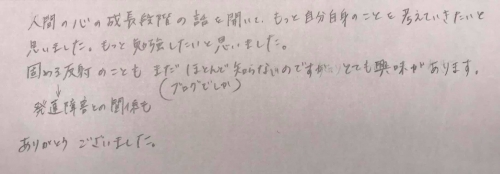 人間の心の成長段階の話を聞いて、もっと自分自身のことを考えていきたいと
思いました。もっと勉強したいと思いました。
固める反射のことも まだほとんど知らないのですが、とても興味があります。
(ブログでしか)
↓
発達障害との関係も
ありがとうございました。